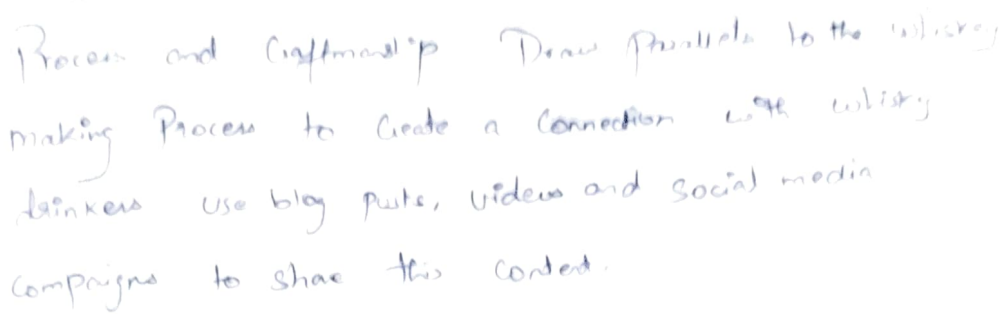 Process and Craftmanship Draw Parallels to the whiskey
making Process to Create a Connection with whisky
drinkers use blog posts, videos and social media
campaigns to share this content.